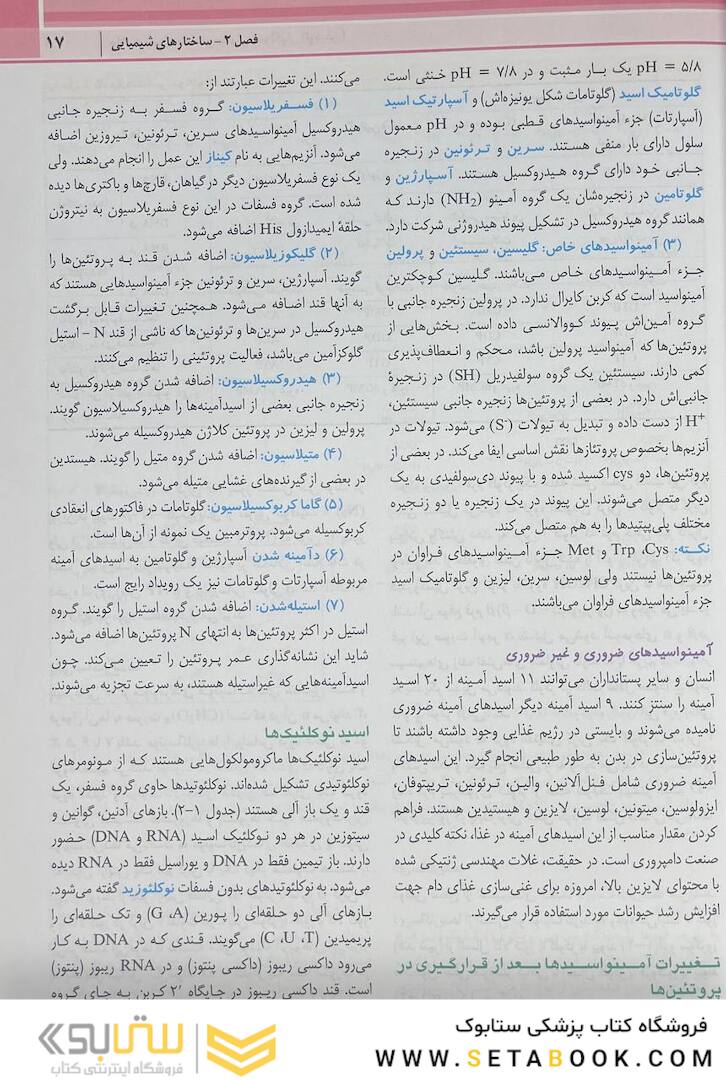 فصل ۲ – ساختارهای شیمیایی
۱۷
pH = ۵/۸ یک بار مثبت و در pH = ۷/۸ خنثی است.
گلوتامیک اسید (گلوتامات شکل یونیزه‌اش) و آسپارتیک اسید
(آسپارتات) جزء آمینواسیدهای قطبی بوده و در pH معمول
سلول دارای بار منفی هستند. سرین و ترئونین در زنجیره
جانبی خود دارای گروه هیدروکسیل هستند. آسپارژین و
گلوتامین در زنجیره‌شان یک گروه آمینو (NH₂) دارند که
همانند گروه هیدروکسیل در تشکیل پیوند هیدروژنی شرکت دارد.
(۳) آمینواسیدهای خاص: گلیسین، سیستئین و پرولین
جزء آمینواسیدهای خاص می‌باشند. گلیسین کوچکترین
آمینواسید است که کربن کایرال ندارد. در پرولین زنجیره جانبی با
گروه آمین‌اش پیوند کووالانسی داده است. بخش‌هایی از
پروتئین‌ها که آمینواسید پرولین باشد، محکم و انعطاف‌پذیری
کمی دارند. سیستئین یک گروه سولفیدریل (SH) در زنجیرهٔ
جانبی‌اش دارد. در بعضی از پروتئین‌ها زنجیره جانبی سیستئین،
H⁺ از دست داده و تبدیل به تیولات (S⁻) می‌شود. تیولات در
آنزیم‌ها بخصوص پروتئازها نقش اساسی ایفا می‌کند. در بعضی از
پروتئین‌ها، دو cys اکسید شده و با پیوند دی‌سولفیدی به یک
دیگر متصل می‌شوند. این پیوند در یک زنجیره یا دو زنجیره
مختلف پلی‌پپتیدها را به هم متصل می‌کند.
نکته: Trp ،Cys و Met جزء آمینواسیدهای فراوان در
پروتئین‌ها نیستند ولی لوسین، سرین، لیزین و گلوتامیک اسید
جزء آمینواسیدهای فراوان می‌باشند.
آمینواسیدهای ضروری و غیر ضروری
انسان و سایر پستانداران می‌توانند ۱۱ اسید آمینه از ۲۰ اسید
آمینه را سنتز کنند. ۹ اسید آمینه دیگر اسیدهای آمینه ضروری
نامیده می‌شوند و بایستی در رژیم غذایی وجود داشته باشند تا
پروتئین‌سازی در بدن به طور طبیعی انجام گیرد. این اسیدهای
آمینه ضروری شامل فنل‌آلانین، والین، ترئونین، تریپتوفان،
ایزولوسین، میتونین، لوسین، لایزین و هیستیدین هستند. فراهم
کردن مقدار مناسب از این اسیدهای آمینه در غذا، نکته کلیدی در
صنعت دامپروری است. در حقیقت، غلات مهندسی ژنتیکی شده
با محتوای لایزین بالا، امروزه برای غنی‌سازی غذای دام جهت
افزایش رشد حیوانات مورد استفاده قرار می‌گیرند.
تغییرات آمینواسیدها بعد از قرارگیری در
پروتئین‌ها
می‌کنند. این تغییرات عبارتند از:
(۱) فسفریلاسیون: گروه فسفر به زنجیره جانبی
هیدروکسیل آمینواسیدهای سرین، ترئونین، تیروزین اضافه
می‌شود. آنزیم‌هایی به نام کیناز این عمل را انجام می‌دهند. ولی
یک نوع فسفریلاسیون دیگر در گیاهان، قارچ‌ها و باکتری‌ها دیده
شده است. گروه فسفات در این نوع فسفریلاسیون به نیتروژن
حلقهٔ ایمیدازول His اضافه می‌شود.
(۲) گلیکوزیلاسیون: اضافه شدن قند به پروتئین‌ها را
گویند. آسپارژین، سرین و ترئونین جزء آمینواسیدهایی هستند که
به آنها قند اضافه می‌شود. همچنین تغییرات قابل برگشت
هیدروکسیل در سرین‌ها و ترئونین‌ها که ناشی از قند N – استیل
گلوکزآمین می‌باشد، فعالیت پروتئینی را تنظیم می‌کنند.
(۳) هیدروکسیلاسیون: اضافه شدن گروه هیدروکسیل به
زنجیره جانبی بعضی از اسیدآمینه‌ها را هیدروکسیلاسیون گویند.
پرولین و لیزین در پروتئین کلاژن هیدروکسیله می‌شوند.
(۴) متیلاسیون: اضافه شدن گروه متیل را گویند. هیستدین
در بعضی از گیرنده‌های غشایی متیله می‌شود.
(۵) گاما کربوکسیلاسیون: گلوتامات در فاکتورهای انعقادی
کربوکسیله می‌شود. پروترمبین یک نمونه از آن‌ها است.
(۶) دآمینه شدن آسپارژین و گلوتامین به اسیدهای آمینه
مربوطه آسپارتات و گلوتامات نیز یک رویداد رایج است.
(۷) استیله‌شدن: اضافه شدن گروه استیل را گویند. گروه
استیل در اکثر پروتئین‌ها به انتهای N پروتئین‌ها اضافه می‌شود.
شاید این نشانه‌گذاری عمر پروتئین را تعیین می‌کند. چون
اسیدآمینه‌هایی که غیراستیله هستند، به سرعت تجزیه می‌شوند.
اسید نوکلئیک‌ها
اسید نوکلئیک‌ها ماکرومولکول‌هایی هستند که از مونومرهای
نوکلئوتیدی تشکیل شده‌اند. نوکلئوتیدها حاوی گروه فسفر، یک
قند و یک باز آلی هستند (جدول ۱-۲). بازهای آدنین، گوانین و
سیتوزین در هر دو نوکلئیک اسید (RNA و DNA) حضور
دارند. باز تیمین فقط در DNA و یوراسیل فقط در RNA دیده
می‌شود. به نوکلئوتیدهای بدون فسفات نوکلئوزید گفته می‌شود.
بازهای آلی دو حلقه‌ای را پورین (G ،A) و تک حلقه‌ای را
پریمیدین (C ،U ،T) می‌گویند. قندی که در DNA به کار
می‌رود داکسی ریبوز (داکسی پنتوز) و در RNA ریبوز (پنتوز)
است. قند داکسی ریبوز در جایگاه ۲′ کربن به جای گروه
فروشگاه کتاب پزشکی ستابوک
WWW.SETABOOK.COM
ستابوک
فروشگاه اینترنتی کتاب